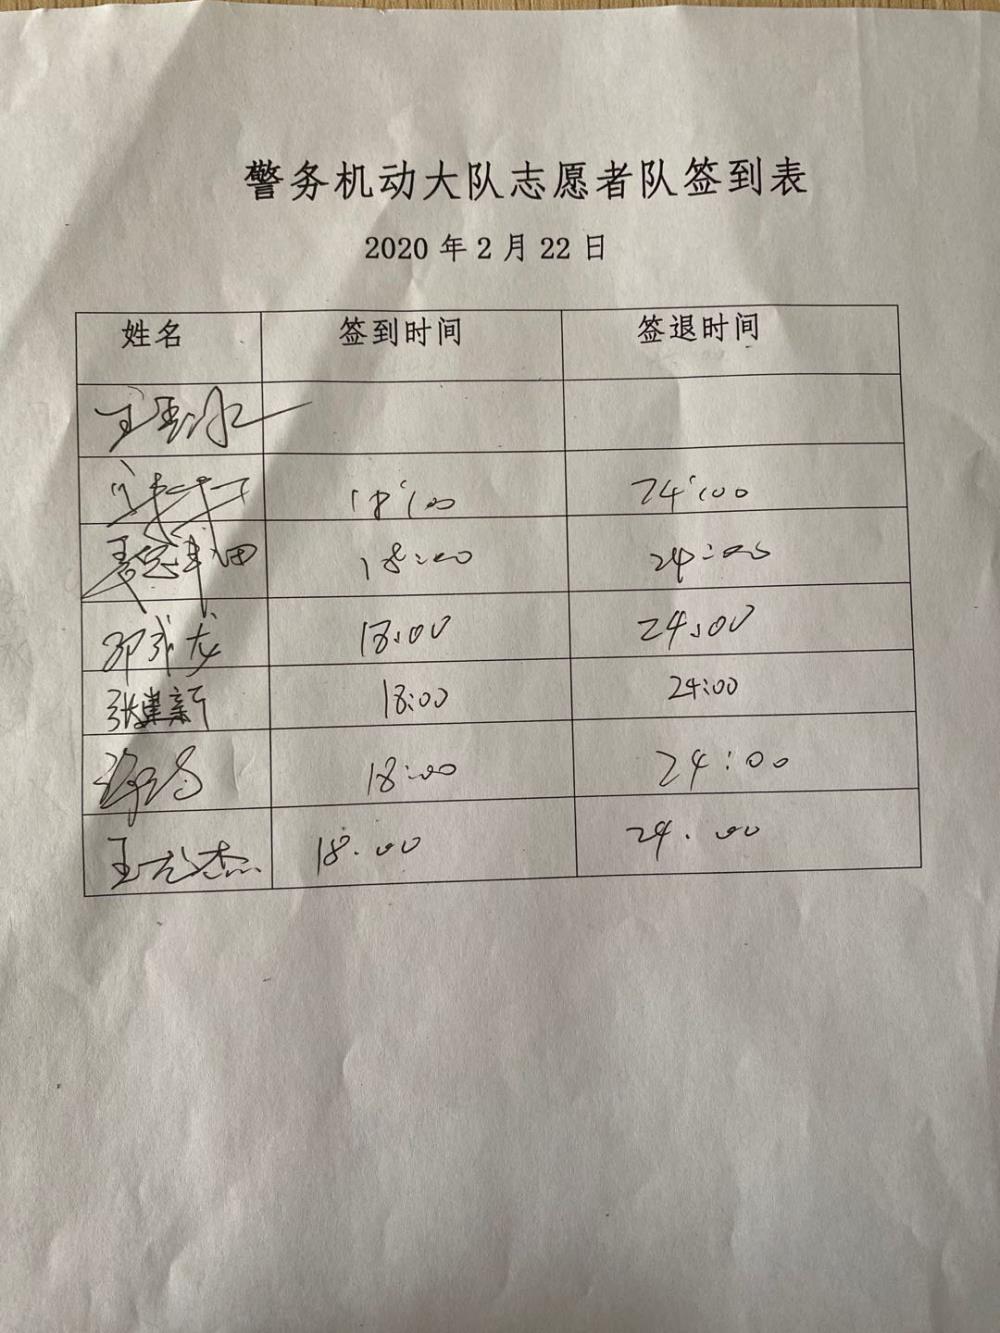 警务机动大队志愿者队签到表
2020 年 2 月 22 日
姓名 签到时间 签退时间
王玉冰
18:00 24:00
18:00 24:00
邵成龙 18:00 24:00
张建新 18:00 24:00
18:00 24:00
王杰 18.00 24.00